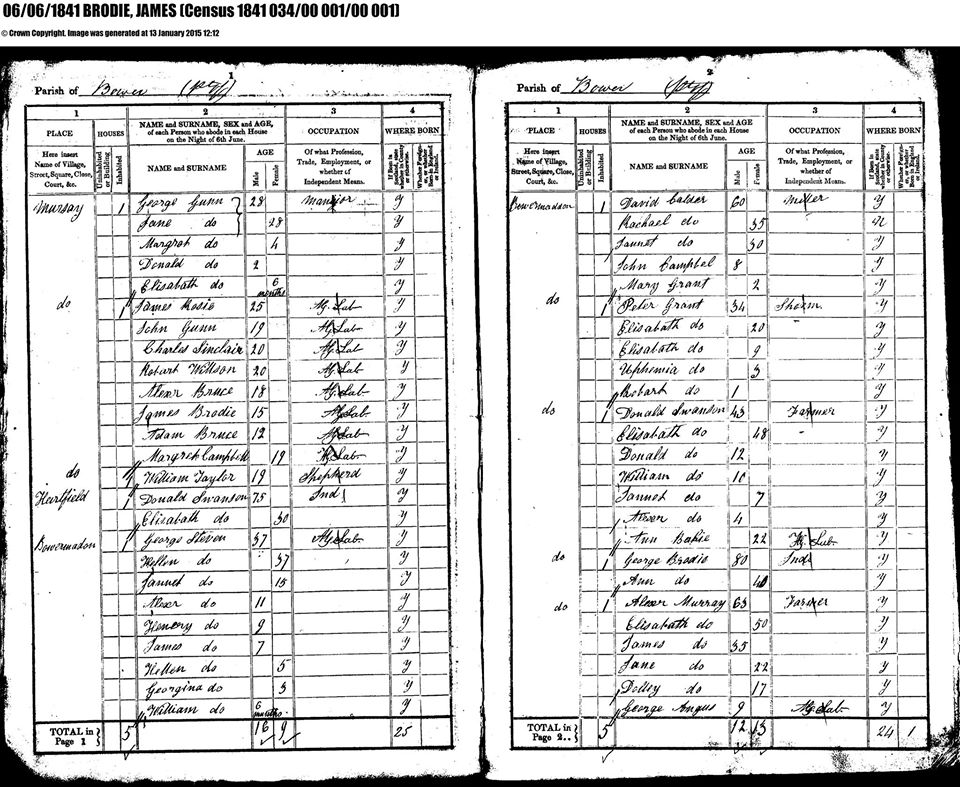 06/06/1841 BRODIE, JAMES (Census 1841 034/00 001/00 001)
© Crown Copyright. Image was generated at 13 January 2015 12:12
1
Parish of Bower
1 2 3 4
PLACE HOUSES NAME and SURNAME, SEX and AGE, of each Person who abode in each House on the Night of 6th June. OCCUPATION WHERE BORN
Here insert Name of Village, Street, Square, Close, Court, &c. Uninhabited or Building Inhabited NAME and SURNAME AGE Male Female Of what Profession, Trade, Employment, or whether of Independent Means. If Born in Scotland, state whether in County or otherwise. Whether Foreigner, or whether Born in England or Ireland.
1 George Gunn 28 y
Jane do 28 y
Margrat do 4 y
Donald do 2 y
Elisabath do 6 months y
do 1 James Rosie 25 Ag. Lab y
John Gunn 19 Ag. Lab y
Charles Sinclair 20 Ag. Lab y
Robart Willson 20 Ag. Lab y
Alexr Bruce 18 Ag. Lab y
James Brodie 15 Ag. Lab y
Adam Bruce 12 Ag. Lab y
Margrat Campbell 19 Ag. Lab y
do 1 William Taylor 19 Shepherd y
1 Donald Swanson 75 Ind y
Elisabath do 30 y
Bowermadon 1 George Steven 37 Ag. Lab y
Hellen do 37 y
Jannet do 15 y
Alexr do 11 y
Henery do 9 y
James do 7 y
Hellen do 5 y
Georgina do 3 y
William do 6 months y
TOTAL in Page 1 5 16 9 25
2
Parish of Bower
1 2 3 4
PLACE HOUSES NAME and SURNAME, SEX and AGE, of each Person who abode in each House on the Night of 6th June. OCCUPATION WHERE BORN
Here insert Name of Village, Street, Square, Close, Court, &c. Uninhabited or Building Inhabited NAME and SURNAME AGE Male Female Of what Profession, Trade, Employment, or whether of Independent Means. If Born in Scotland, state whether in County or otherwise. Whether Foreigner, or whether Born in England or Ireland.
Bowermadon 1 David Calder 60 Miller y
Rachael do 35 n
Jannet do 30 y
John Campbel 8 y
Mary Grant 2 y
do 1 Peter Grant 34 y
Elisabath do 20 y
Elisabath do 9 y
Uphemia do 3 y
Robart do 1 y
do 1 Donald Swanson 43 Farmer y
Elisabath do 48 y
Donald do 12 y
William do 10 y
Jannet do 7 y
Alexr do 4 y
Ann Bakie 22 Ag. Lab y
do 1 George Brodie 80 Ind y
Ann do 40 y
do 1 Alexr Murray 63 Farmer y
Elisabath do 50 y
James do 35 y
Jane do 22 y
Dolly do 17 y
George Angus 9 Ag. Lab y
TOTAL in Page 2.. 5 12 13 24 1